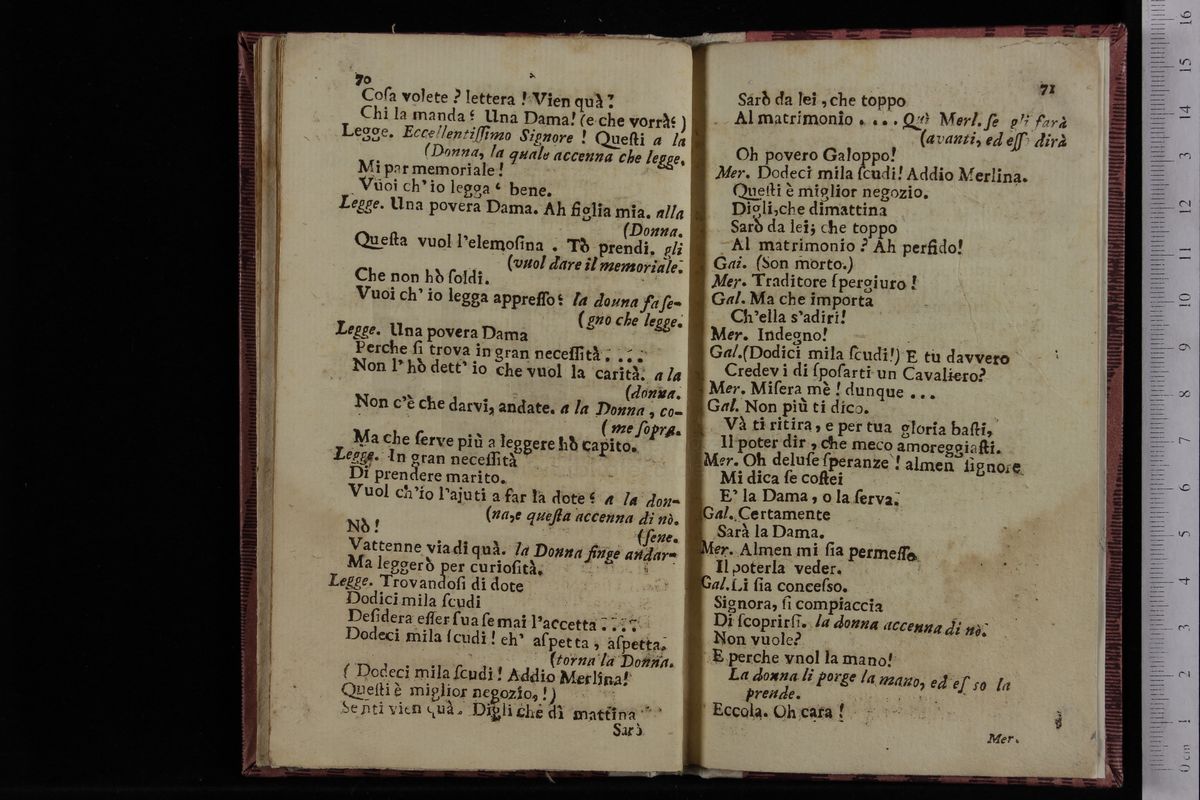 70
Coſa volete ? lettera ! Vien quà ?
Chi la manda ? Una Dama! (e che vorrà? )
Legge. Eccellentiſſimo Signore ! Queſti a la
(Donna, la quale accenna che legge.
Mi par memoriale !
Vuoi ch' io legga ? bene.
Legge. Una povera Dama. Ah figlia mia. alla
(Donna.
Queſta vuol l'elemoſina . Tò prendi. gli
(vuol dare il memoriale.
Che non hò ſoldi.
Vuoi ch' io legga appreſſo ? la donna fa ſe-
(gno che legge.
Legge. Una povera Dama
Perche ſi trova in gran neceſſità . . . .
Non l' hò dett' io che vuol la carità. a la
(donna.
Non c'è che darvi, andate. a la Donna , co-
( me ſopra.
Ma che ſerve più a leggere hò capito.
Legge. In gran neceſſità
Di prendere marito.
Vuol ch'io l'ajuti a far la dote ? a la don-
(na,e queſta accenna di nò.
Nò !
(ſene.
Vattenne via di quà. la Donna finge andar-
Ma leggerò per curioſità.
Legge. Trovandoſi di dote
Dodici mila ſcudi
Deſidera eſſer ſua ſe mai l'accetta . . . .
Dodeci mila ſcudi ! eh' aſpetta , aſpetta.
(torna la Donna.
( Dodeci mila ſcudi ! Addio Merlina!
Queſti è miglior negozio, !)
Senti vien quà. Digli che dì mattina
Sarò
71
Sarò da lei , che toppo
Al matrimonio . . . . Quì Merl. ſe gli farà
(avanti, ed eſſo dirà
Oh povero Galoppo!
Mer. Dodeci mila ſcudi! Addio Merlina.
Queſti è miglior negozio.
Digli,che dimattina
Sarò da lei; che toppo
Al matrimonio ? Ah perfido!
Gal. (Son morto.)
Mer. Traditore ſpergiuro !
Gal. Ma che importa
Ch'ella s'adiri!
Mer. Indegno!
Gal.(Dodici mila ſcudi!) E tu davvero
Credevi di ſpoſarti un Cavaliero?
Mer. Miſera mè ! dunque . . .
Gal. Non più ti dico.
Và ti ritira, e per tua gloria baſti,
Il poter dir , che meco amoreggiaſti.
Mer. Oh deluſe ſperanze ! almen ſignore
Mi dica ſe coſtei
E' la Dama , o la ſerva.
Gal. Certamente
Sarà la Dama.
Mer. Almen mi ſia permeſſo
Il poterla veder.
Gal.Li ſia conceſso.
Signora, ſi compiaccia
Di ſcoprirſi. la donna accenna di nò.
Non vuole?
E perche vnol la mano!
La donna li porge la mano, ed eſ so la
prende.
Eccola. Oh cara !
Mer.
16
15
14
13
12
11
10
9
8
7
6
5
4
3
2
1
0 cm